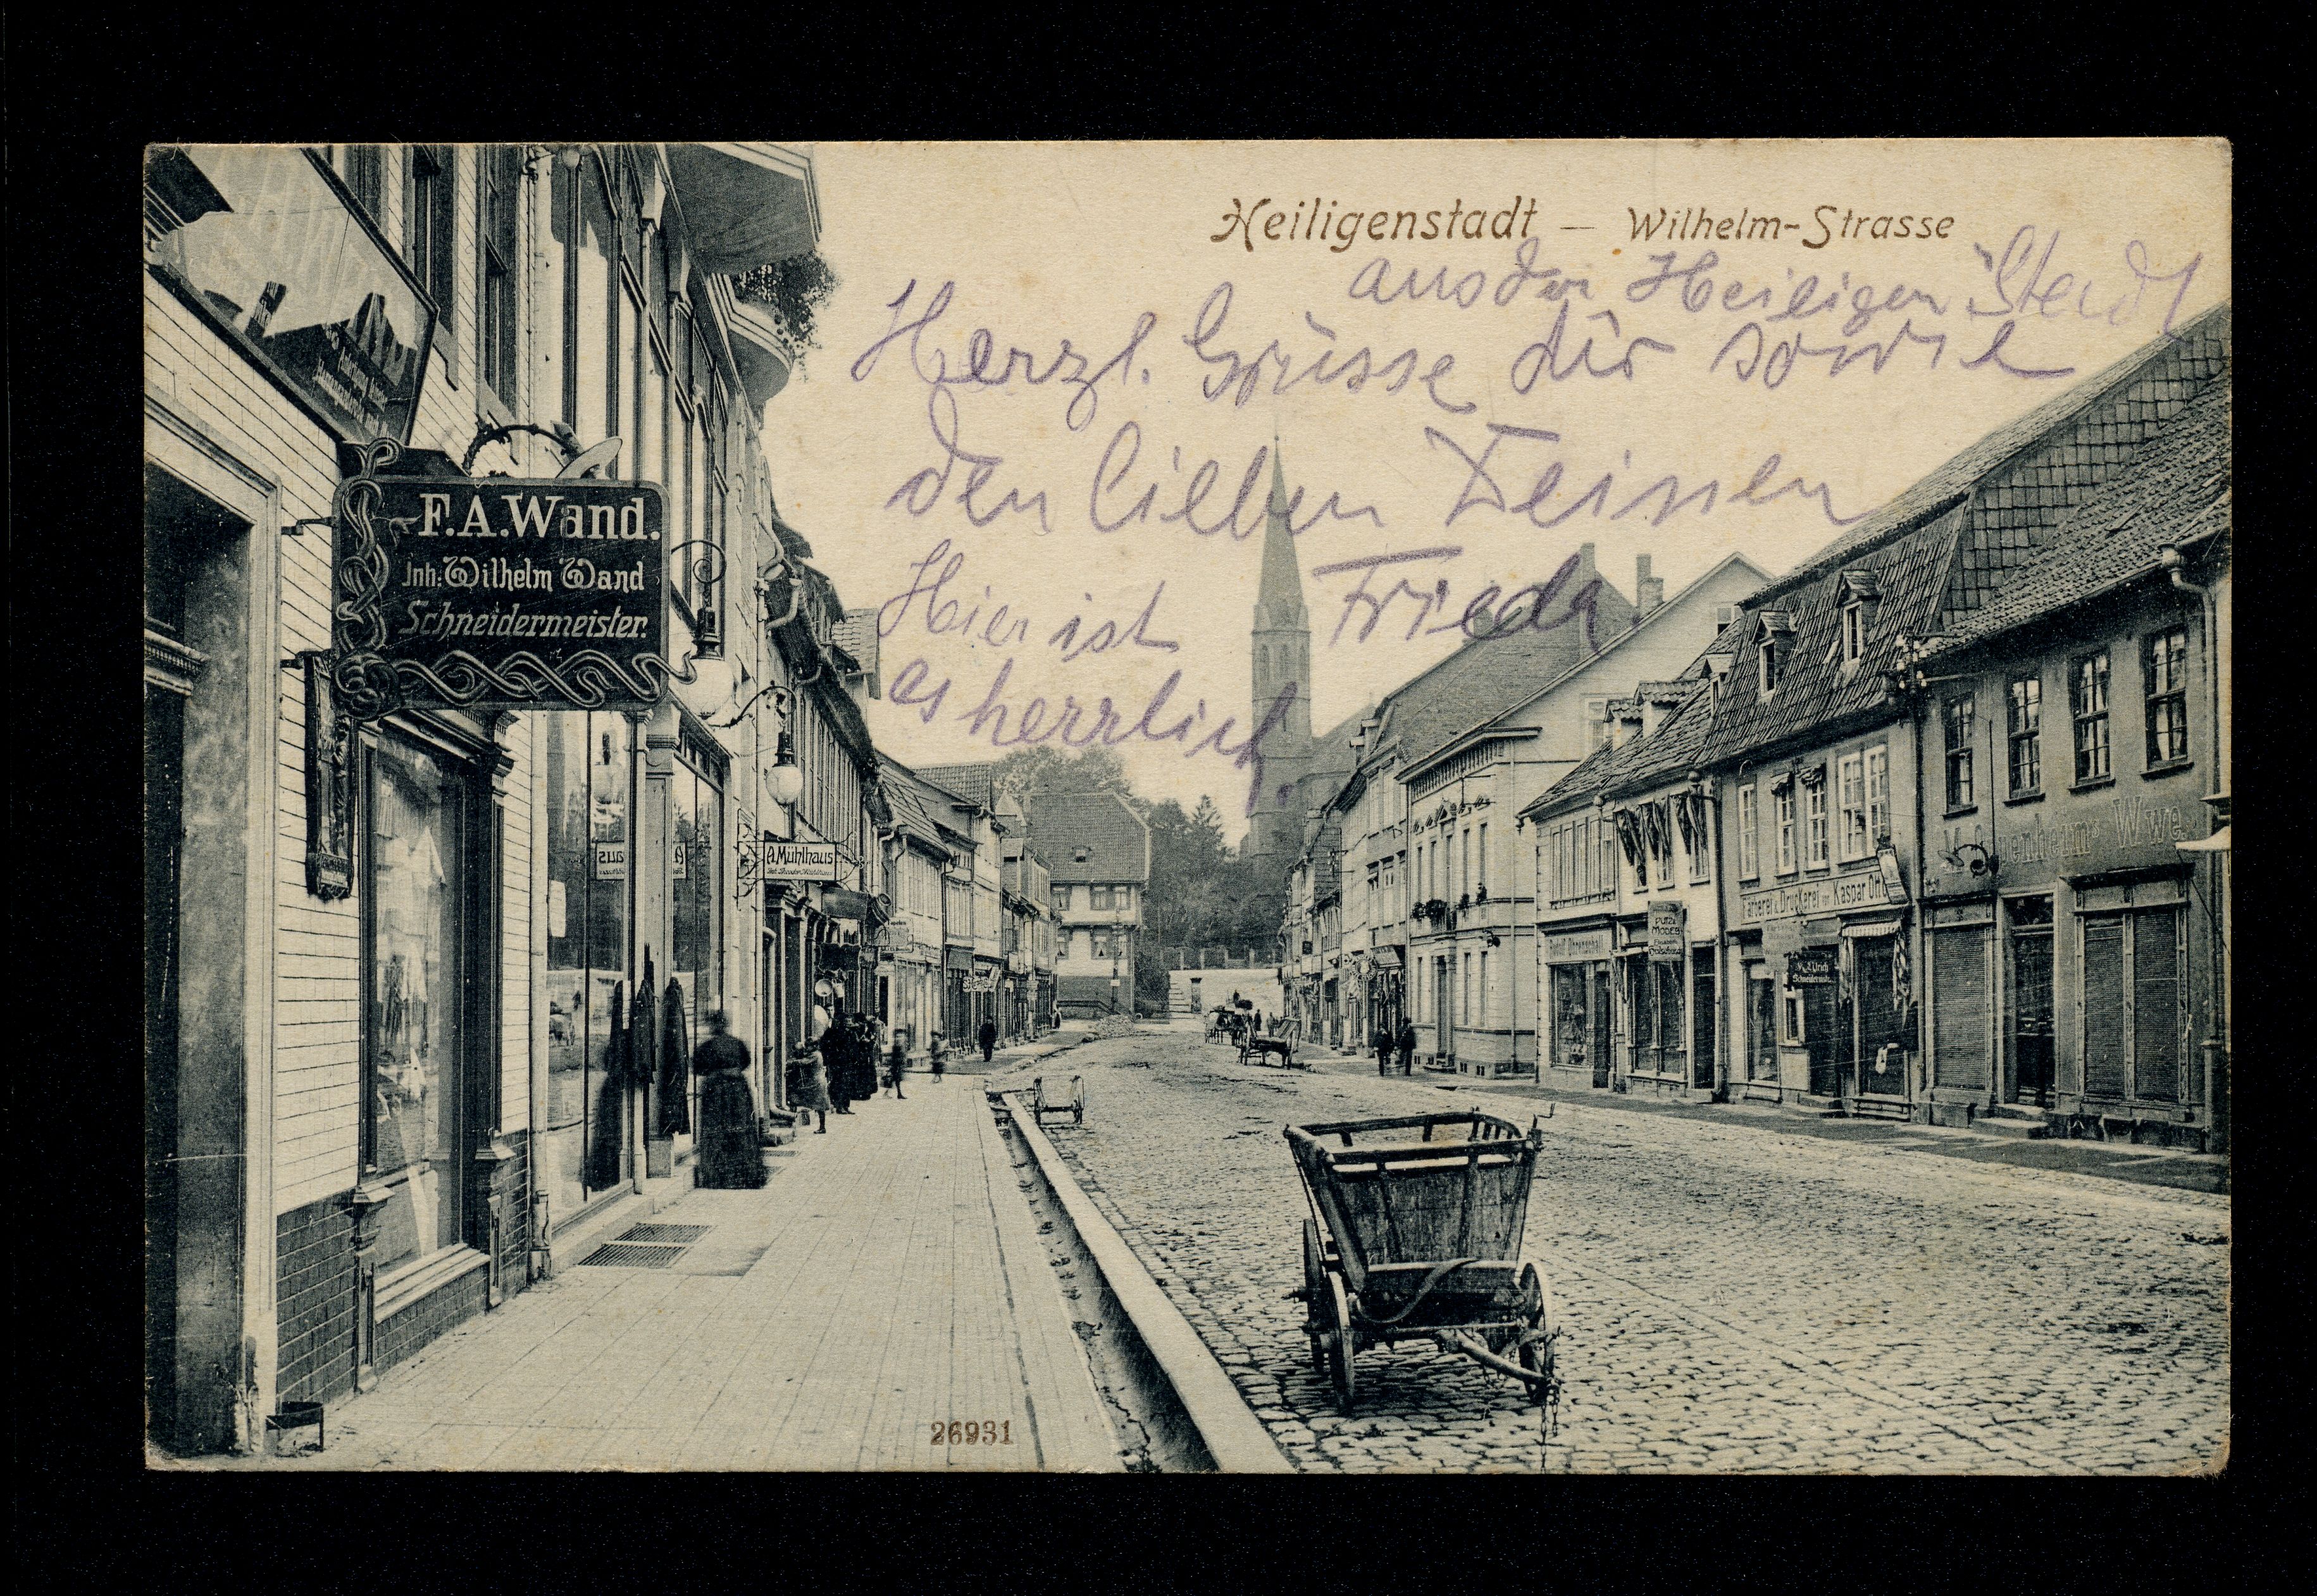 Heiligenstadt — Wilhelm-Strasse
aus der Heiligen Stadt
Herzl. Grüsse dir sowie
den lieben Deinen
Frieda.
Hier ist
es herrlich.
F.A.Wand.
Inh: Wilhelm Wand
Schneidermeister.
A. Mühlhaus
Färberei u. Druckerei von Kaspar Otto
PUTZ
MODEN
Wwe.
26931